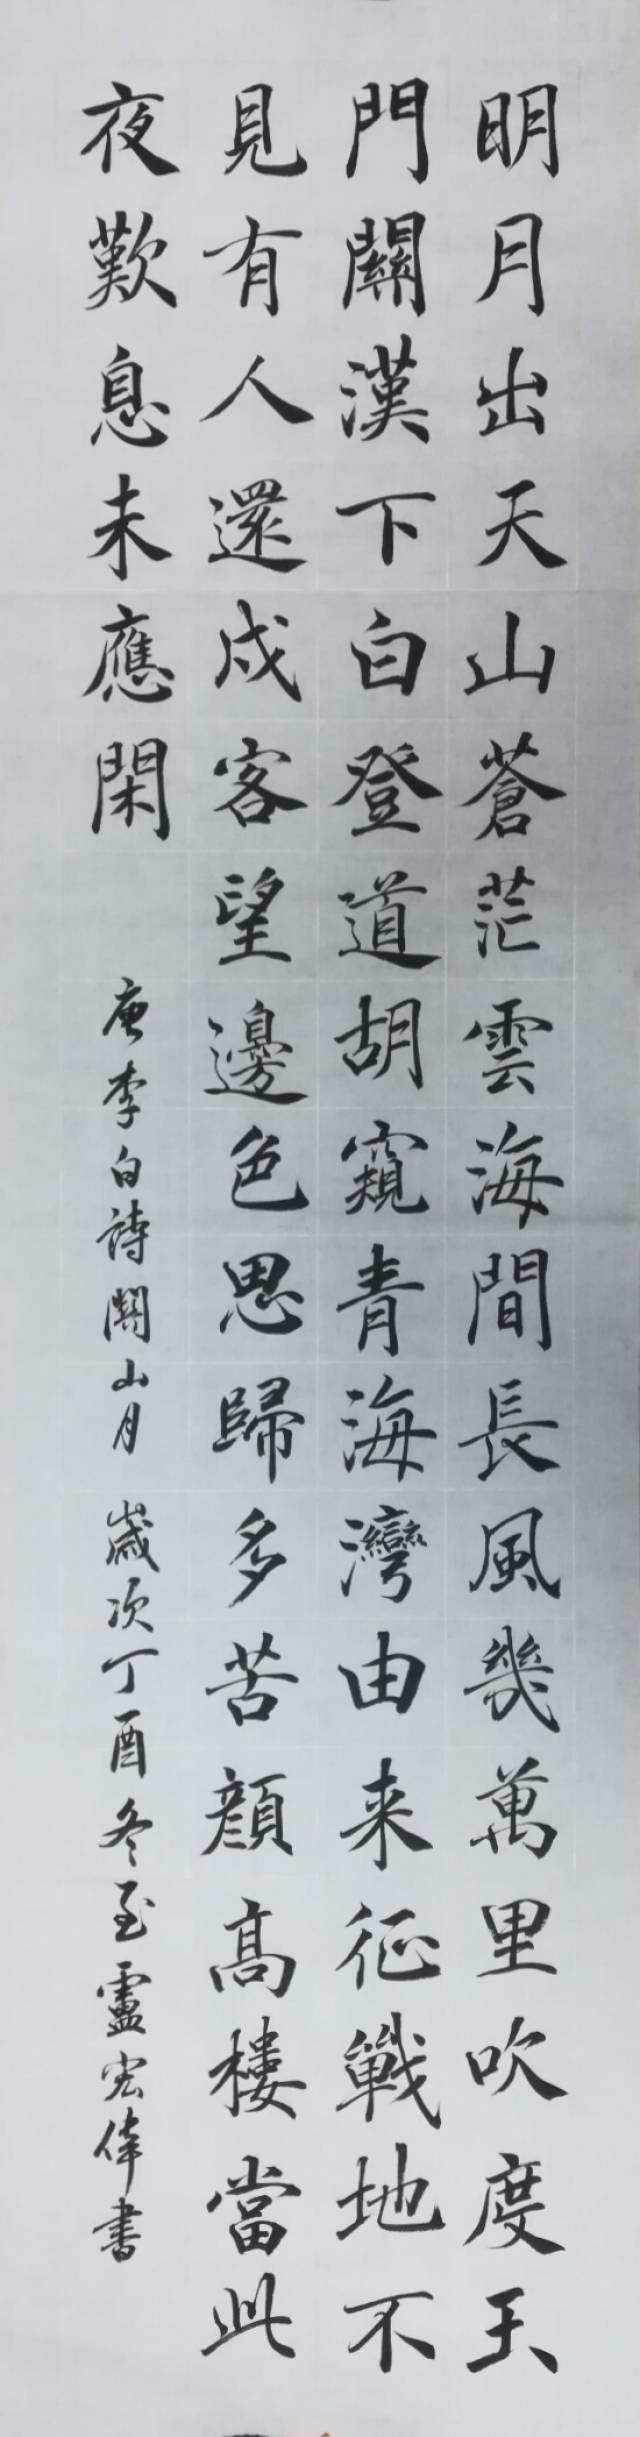 明月出天山蒼茫雲海間長風幾萬里吹度玉
門關漢下白登道胡窺青海灣由来征戰地不
見有人還戍客望邊色思歸多苦顔高樓當此
夜歎息未應閑
唐李白詩關山月 歲次丁酉冬至盧宏偉書